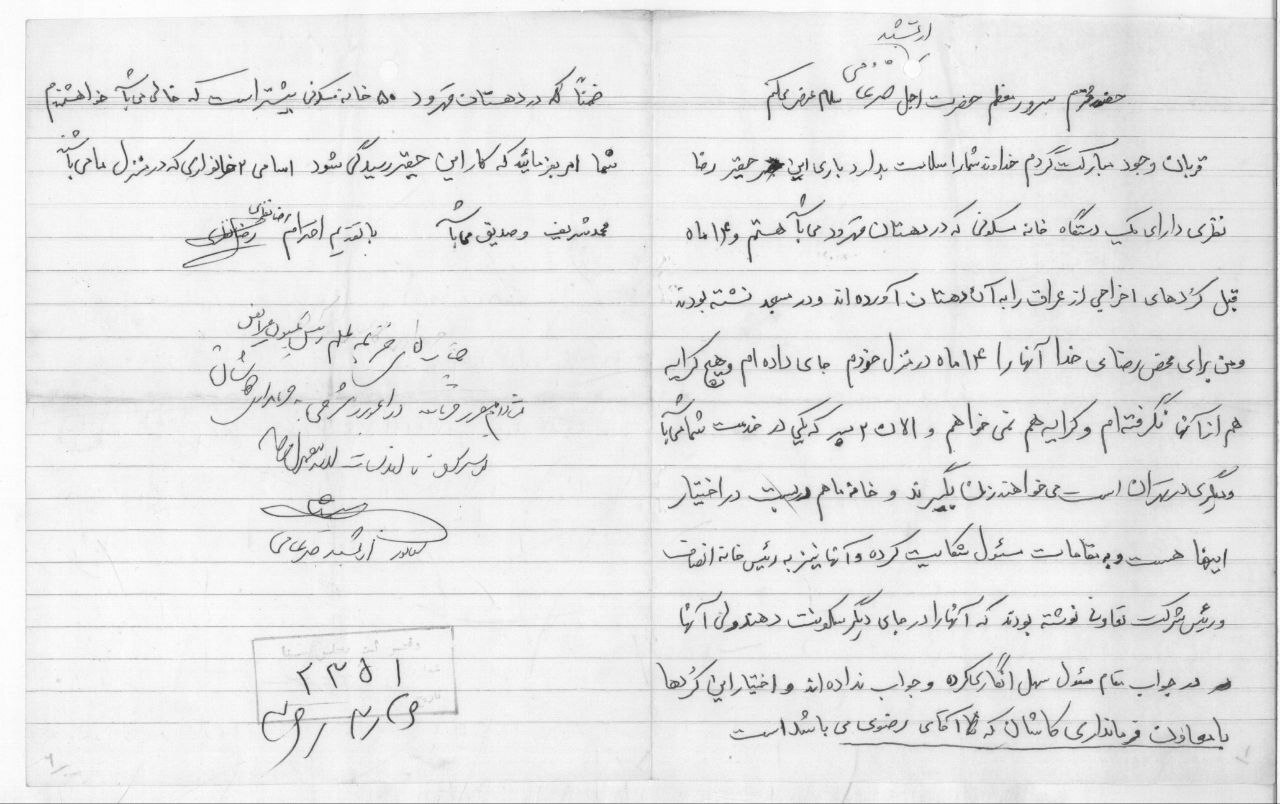 ارتشبد
حضور محترم سرور معظم حضرت اجل سلام عرض میکنم
قربان وجود مبارکت گردم خداوند شما را سلامت بدارد باری این حقیر رضا
نظری دارای یک دستگاه خانه مسکونی که در دهستان قهرود می باشد هستم و ۱۴ ماه
قبل کردهای اخراجی از عراق را به آن دهستان آورده اند و در مسجد نشسته بودند
ومن برای محض رضای خدا آنها را ۱۴ ماه در منزل خودم جای داده ام و هیچ کرایه
هم از آنها نگرفته ام و کرایه هم نمی خواهم و الان ۲ پسر که یکی در خدمت شما می باشد
و دیگری در تهران است می خواهند زن بگیرند و خانه ما هم دربست در اختیار
اینها هست و به مقامات مسئول شکایت کرده و آنها نیز به رئیس خانه انصاف
و رئیس شرکت تعاونی نوشته بودند که آنها را در جای دیگر سکونت دهند ولی آنها
در جواب مقام مسئول سهل انگاری کرده و جواب نداده اند و اختیار این کردها
با معاون فرمانداری کاشان که آقای رضوی می باشد است
ضمناً در دهستان قهرود ۵۰ خانه مسکونی بیشتر است که خالی می باشد خواهشمندم
شما امر بفرمائید که کار این حقیر رسیدگی شود اسامی ۲ خانواری که در منزل ما می باشند
محمد شریف و صدیق می باشد با تقدیم احترام رضا نظری
رضا نظری
جناب آقای علم رئیس کمیسیون عرایض
سناتور ارتشبد
۲۳۵۱